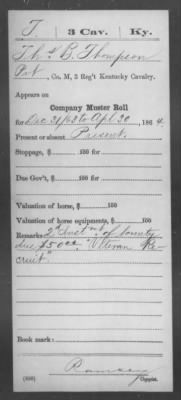 T. 3 Cav. Ky.
Thos B. Thompson
Pvt, Co. M, 3 Reg't Kentucky Cavalry.
Appears on
Company Muster Roll
for Dec 31/63 to Apl 30, 1864.
Present or absent Present.
Stoppage, $ 100 for
Due Gov't, $ 100 for
Valuation of horse, $ 100
Valuation of horse equipments, $ 100
Remarks: 2d Inst mt of bounty
due $50.00. "Veteran Re-
cruit."
Book mark:
Ramsey
(858) Copyist.